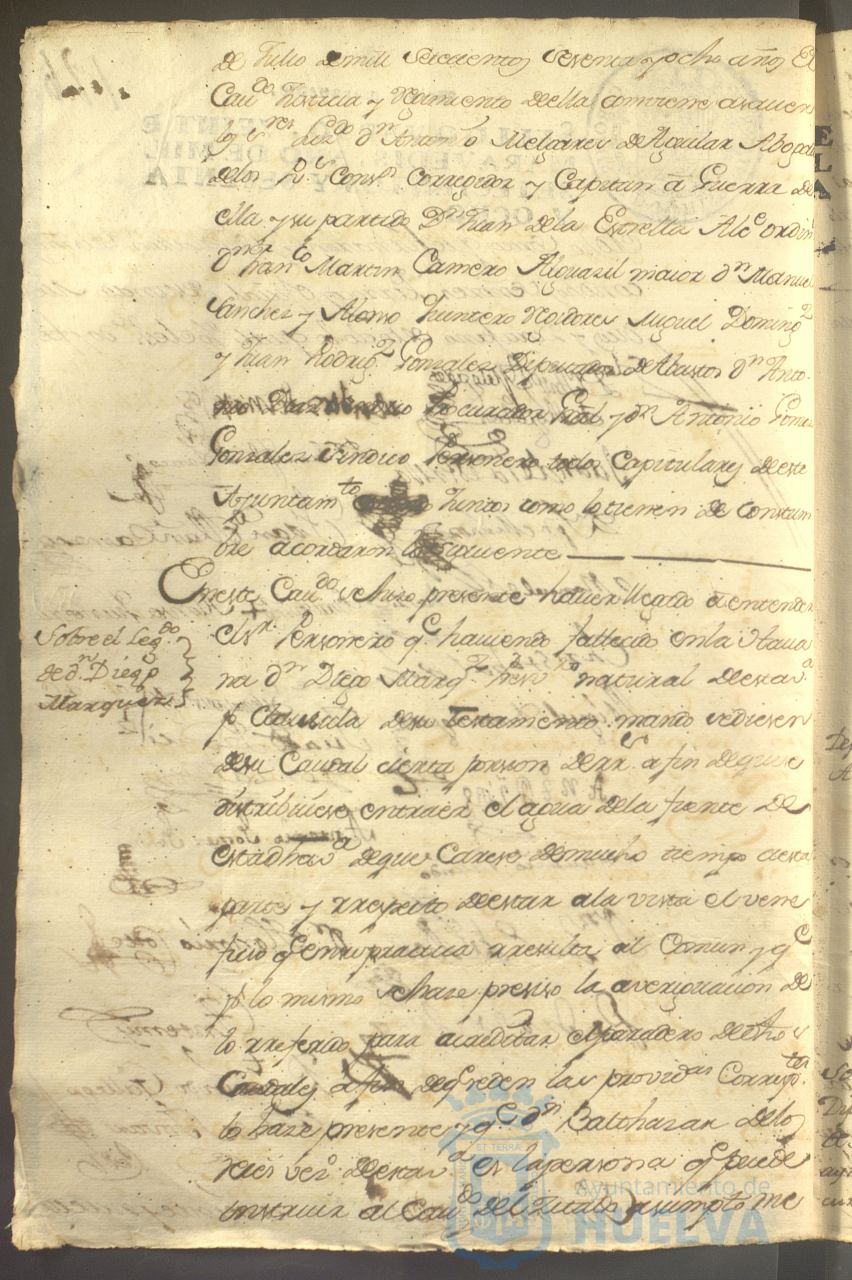 de Julio de mill Setecientos Sesenta y ocho años El
Cavdo Justicia y Regimiento de ella combiene a saver
los Sres Lizdo dn Antonio Melgarejo de Aguilar Abogado
de los Rs Conss Corregidor y Capitan a Guerra de
ella y su partido Dn Juan de la Estrella Alce ordino
dn Franco Martin Camero Alguazil maior dn Manuel
Sanchez y Alonso Quintero Rexidores Miguel Domingz
y Juan Rodrigz Gonzalez Diputados de Abastos dn Anto
nio Diaz Sindico Procurador Gral y dn Antonio Gomez
Gonzalez Sindico Personero todos Capitulares de este
Ayuntamto Juntos como lo tienen de Constum
bre acordaron lo siguiente
En este Cavdo se hizo presente haver llegado a entender
el sr Personero qe haviendo fallecido en la Hava
na dn Diego Marqz Presvo natural de esta va
pr Clausula de su testamento mando se diesen
de su Caudal cierta porsion de rrs a fin de que se
distribuiese en traer el agua de la fuente de
esta dha va de que Carese de mucho tiempo a esta
parte y rrespecto de estar a la vista el vene
ficio qe en su practica rresulta al Comun y qe
pr lo mismo se haze presiso la averiguacion de
lo rreferido para acreditar el paradero de dhos
Caudales a fin de qe se den las providas Correspotes
lo haze presente y qe dn Balthazar de los
Reies vezo de esta va es la persona qe puede
instruir al Cavdo del citado asumpto me
Sobre el Legdo
de dn Diego
Marquez
Ayuntamiento de
HUELVA